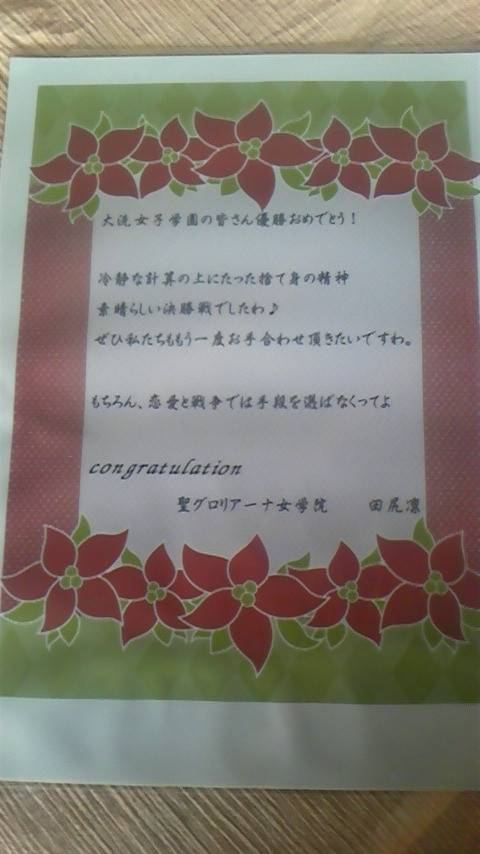 大洗女子学園の皆さん優勝おめでとう！
冷静な計算の上にたった捨て身の精神
素晴らしい決勝戦でしたわ♪
ぜひ私たちももう一度お手合わせ頂きたいですわ。
もちろん、恋愛と戦争では手段を選ばなくってよ
congratulation
聖グロリアーナ女学院　田尻凛